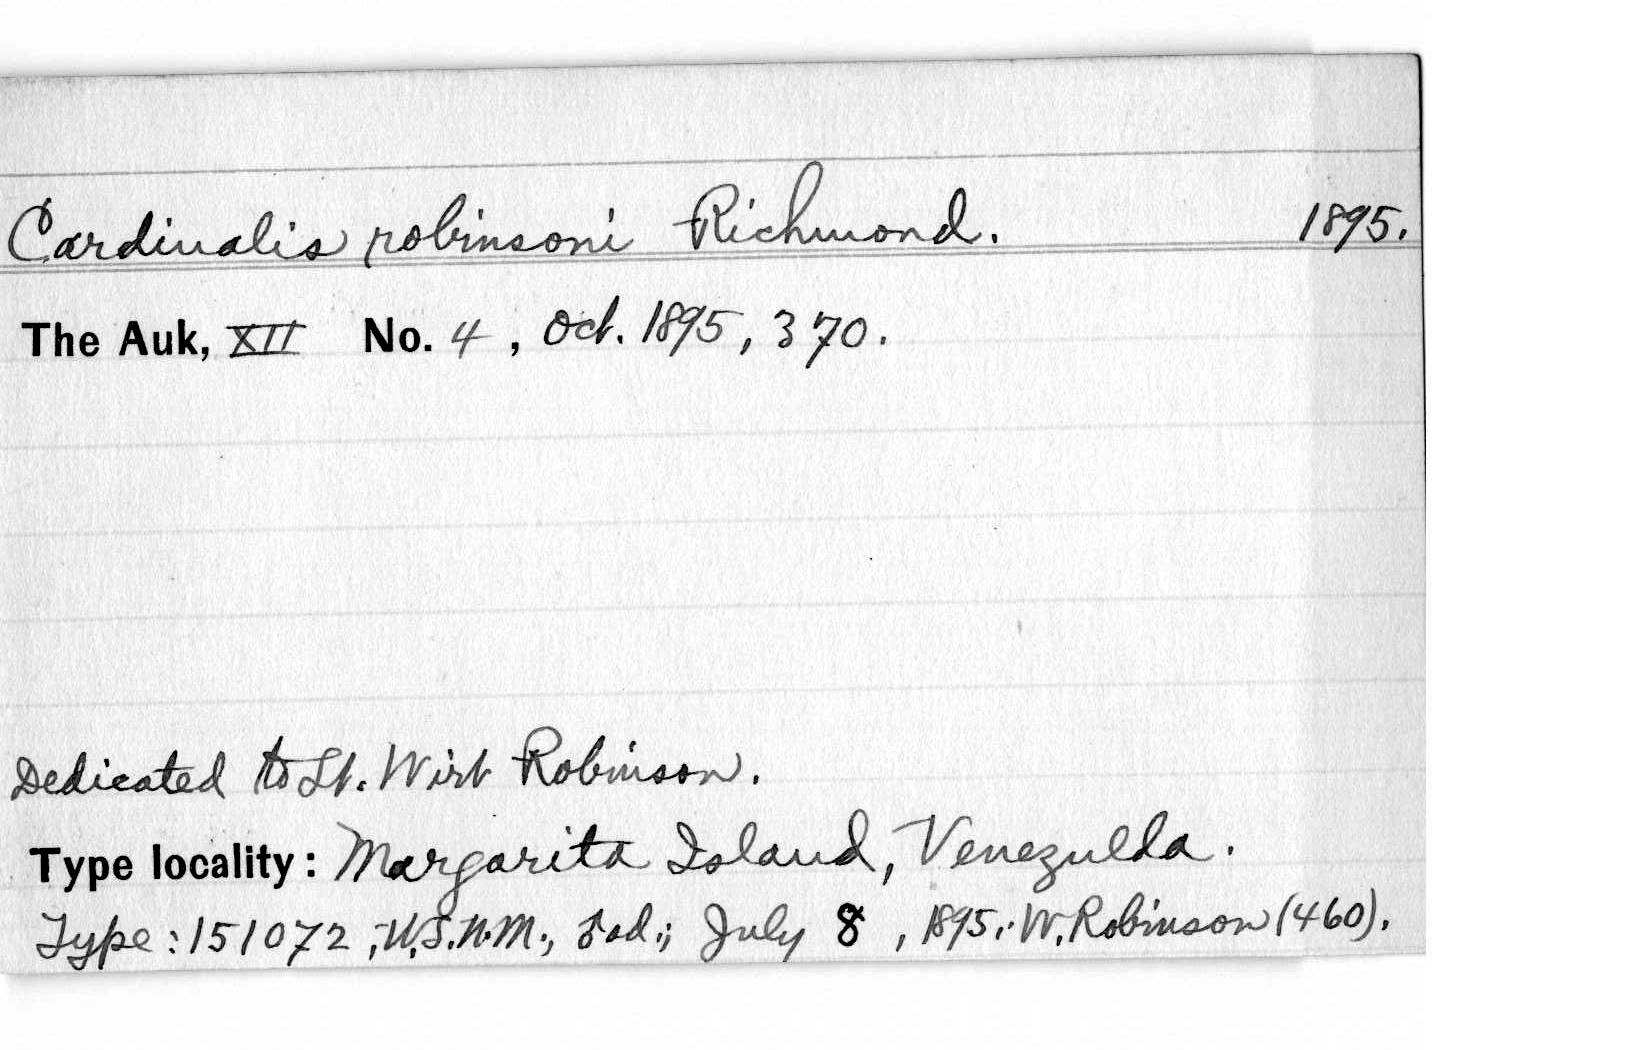 Cardinalis robinsoni Richmond. 1895.
The Auk, XII No. 4, Oct. 1895, 370.
Dedicated to Lt. Wirt Robinson.
Type locality: Margarita Island, Venezulda.
Type: 151072, U.S.N.M., ad.; July 8, 1895. W. Robinson (460).